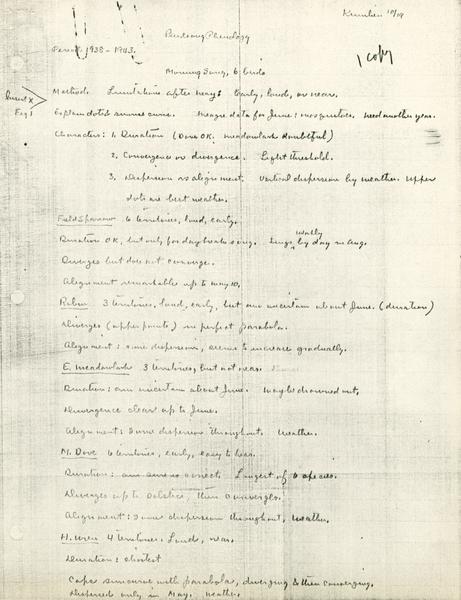 Kumlien 10/19
Birdsong Phenology
1 copy
Period 1938 - 1943.
Morning Song, 6 birds
Insert X
Fig 1
Method. Limitations after May: Early, loud, or near.
Explain dotted sunrise curve. Meagre data for June: mosquitoes. Need another year.
Characters: 1. Duration (Dove OK. Meadowlark doubtful)
2. Convergence or divergence. Light threshold.
3. Dispersion vs alignment. Vertical dispersion by weather. Upper
dots are best weather.
Field Sparrow 6 territories, loud, early.
Duration OK, but only for daybreak song. Sings weakly by day in Aug.
Diverges but does not converge.
Alignment remarkable up to May 10.
Robin 3 territories, loud, early, but am uncertain about June. (duration)
Diverges (upper points) in perfect parabola.
Alignment: some dispersion, seems to increase gradually.
E. Meadowlark 3 territories, but not near.
Duration: am uncertain about June. Maybe drowned out.
Divergence clear up to June.
Alignment: Some dispersion throughout. Weather.
M. Dove 6 territories, early, easy to hear.
Duration: am sure correct. Longest of 6 species.
Diverges up to solstice, then converges.
Alignment: some dispersion throughout, weather.
H. Wren 4 territories. Loud, near.
Duration: shortest
Caps sincurve with parabola, diverging & then converging.
Dispersed only in May. Weather.